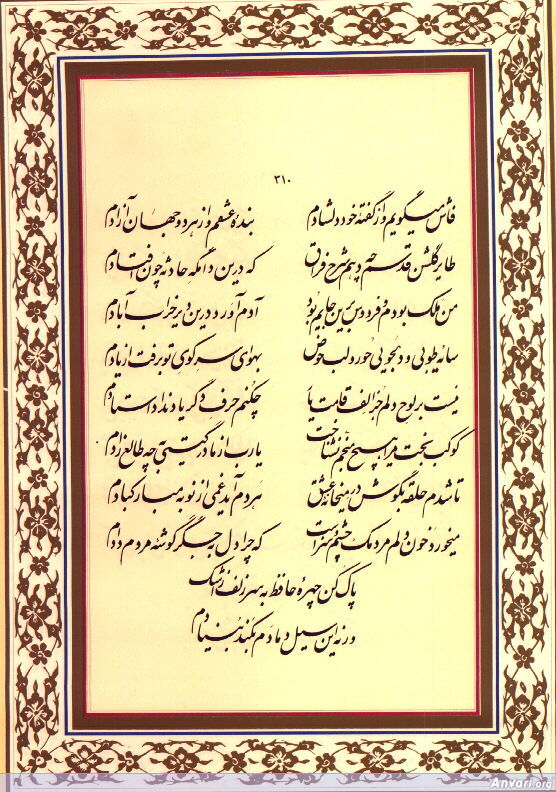 ۳۱۰
فاش میگویم و از گفتهٔ خود دلشادم بندهٔ عشقم و از هر دو جهان آزادم
طایر گلشن قدسم چه دهم شرح فراق که درین دامگه حادثه چون افتادم
من ملک بودم و فردوس برین جایم بود آدم آورد درین دیر خراب آبادم
سایهٔ طوبی و دلجویی حور و لب حوض بهوای سر کوی تو برفت از یادم
نیست بر لوح دلم جز الف قامت یار چکنم حرف دگر یاد نداد استادم
کوکب بخت مرا هیچ منجم نشناخت یارب از مادر گیتی بچه طالع زادم
تا شدم حلقه بگوش در میخانهٔ عشق هر دم آید غمی از نو به مبارکبادم
میخورد خون دلم مردمک چشم سزاست که چرا دل به جگرگوشهٔ مردم دادم
پاک کن چهرهٔ حافظ به سر زلف ز اشک
ورنه این سیل دمادم بکند بنیادم
Anvari.org